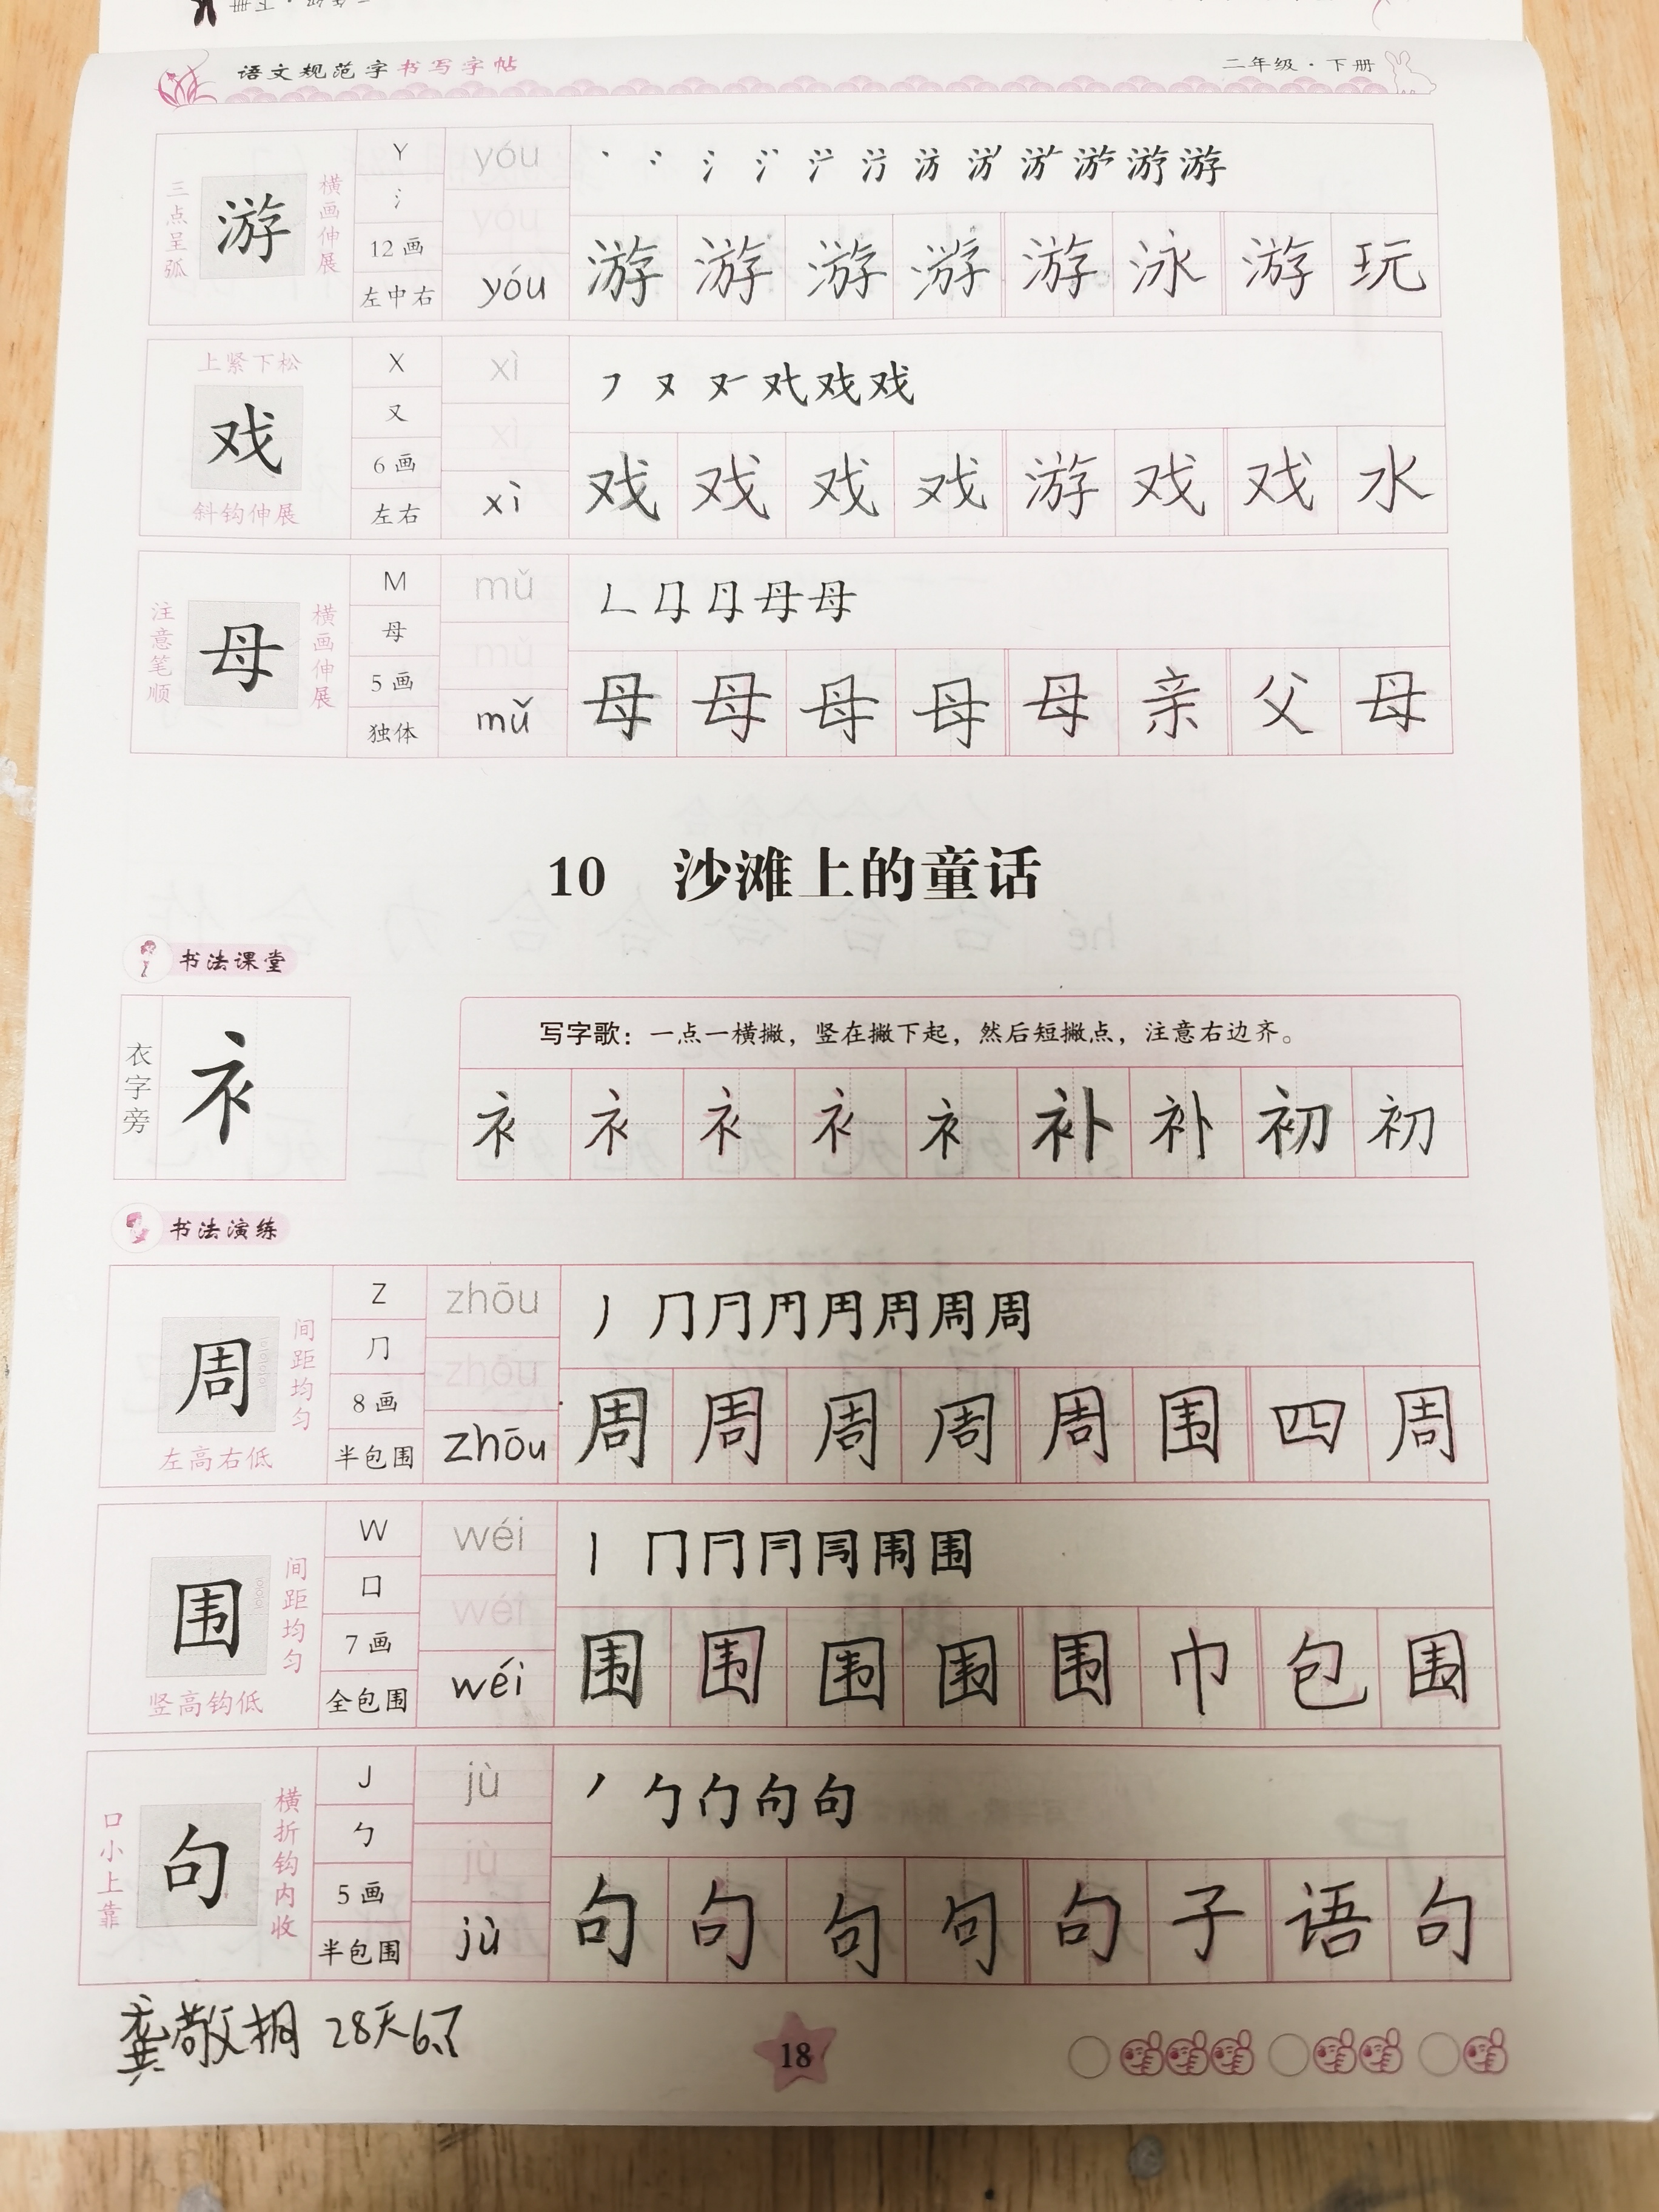 语文规范字书写字帖 二年级·下册
三点呈弧 游 横画伸展
Y
氵
12画
左中右
yóu
yóu
yóu
游游游游游泳游玩
上紧下松
戏
斜钩伸展
X
又
6画
左右
xì
xì
xì
戏戏戏戏游戏戏水
注意笔顺 母 横画伸展
M
母
5画
独体
mǔ
mǔ
mǔ
母母母母母亲父母
10 沙滩上的童话
书法课堂
衣字旁 衤
写字歌：一点一横撇，竖在撇下起，然后短撇点，注意右边齐。
衤衤衤衤衤补补初初
书法演练
周 间距均匀
左高右低
Z
冂
8画
半包围
zhōu
zhōu
zhōu
周周周周周围四周
围 间距均匀
竖高钩低
W
囗
7画
全包围
wéi
wéi
wéi
围围围围围巾包围
口小上靠 句 横折钩内收
J
勹
5画
半包围
jù
jù
jù
句句句句句子语句
龚敬桐 28天
18